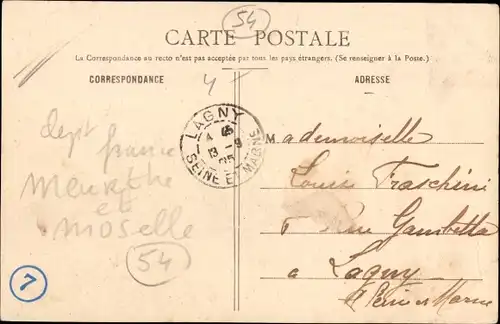 54
CARTE POSTALE
La Correspondance au recto n'est pas acceptée par tous les pays étrangers. (Se renseigner à la Poste.)
CORRESPONDANCE
ADRESSE
LAGNY
13 - 9
SEINE ET MARNE
dept france
Meurthe
et
moselle
54
7
Mademoiselle
Louise Fraschini
6 Rue Gambetta
à Lagny
Seine et Marne